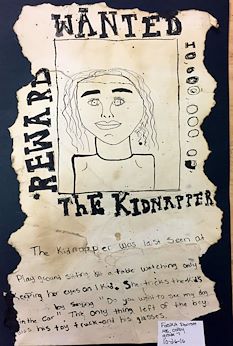 WANTED
REWARD
THE KIDNAPPER
The Kidnapper was last seen at
Playground siting by a table watching only
Keeping her eyes on 1 kid. She tricks the kids
by saying "Do you want to see my dog
in the car". The only thing left of the boy
was his toy truck and his glasses.